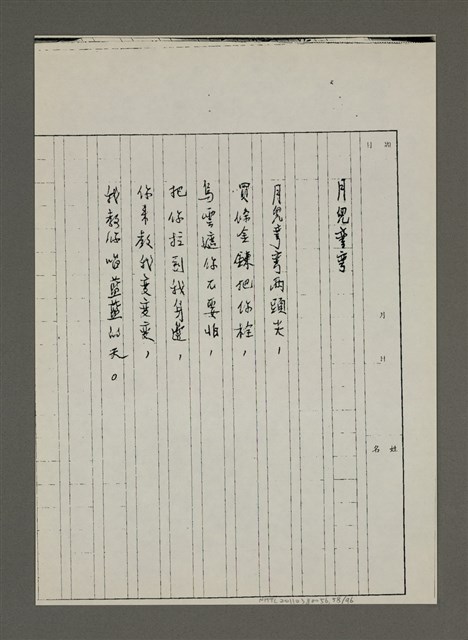 題目
月
日
姓名
月兒彎彎
月兒彎彎兩頭尖，
買條金鍊把你栓，
烏雲遮你不要怕，
把你拉到我身邊，
你來教我變變變，
我教你唱藍藍的天。